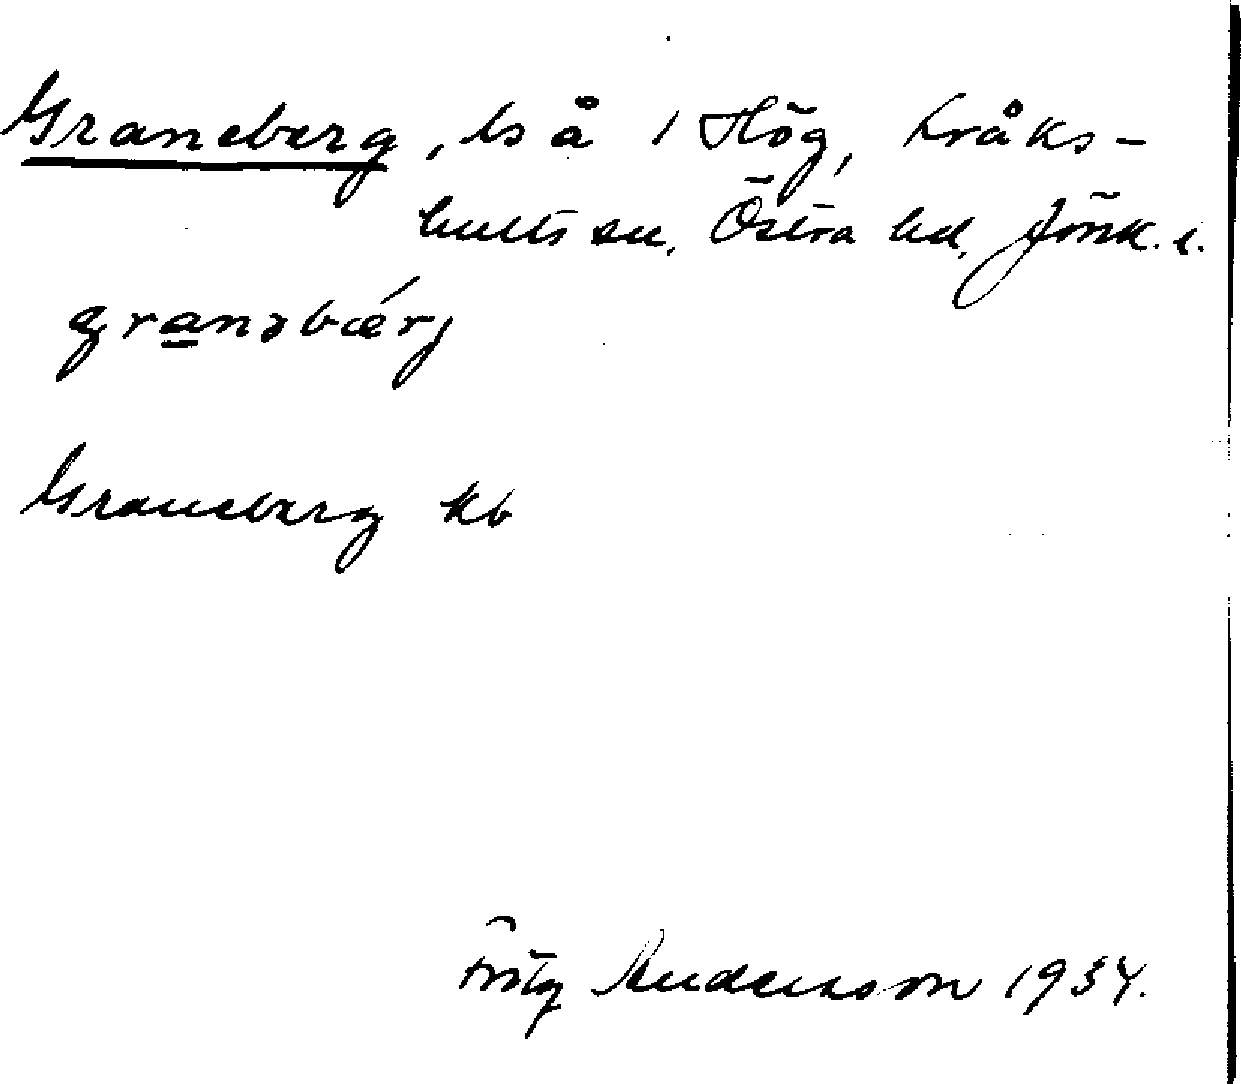 Graneberg, ls å 1 Hög, Kråks-
hults sn, Östra hd, Jönk. l.
granəbǽrj
Graneberg kb
Fritz Andersson 1934.